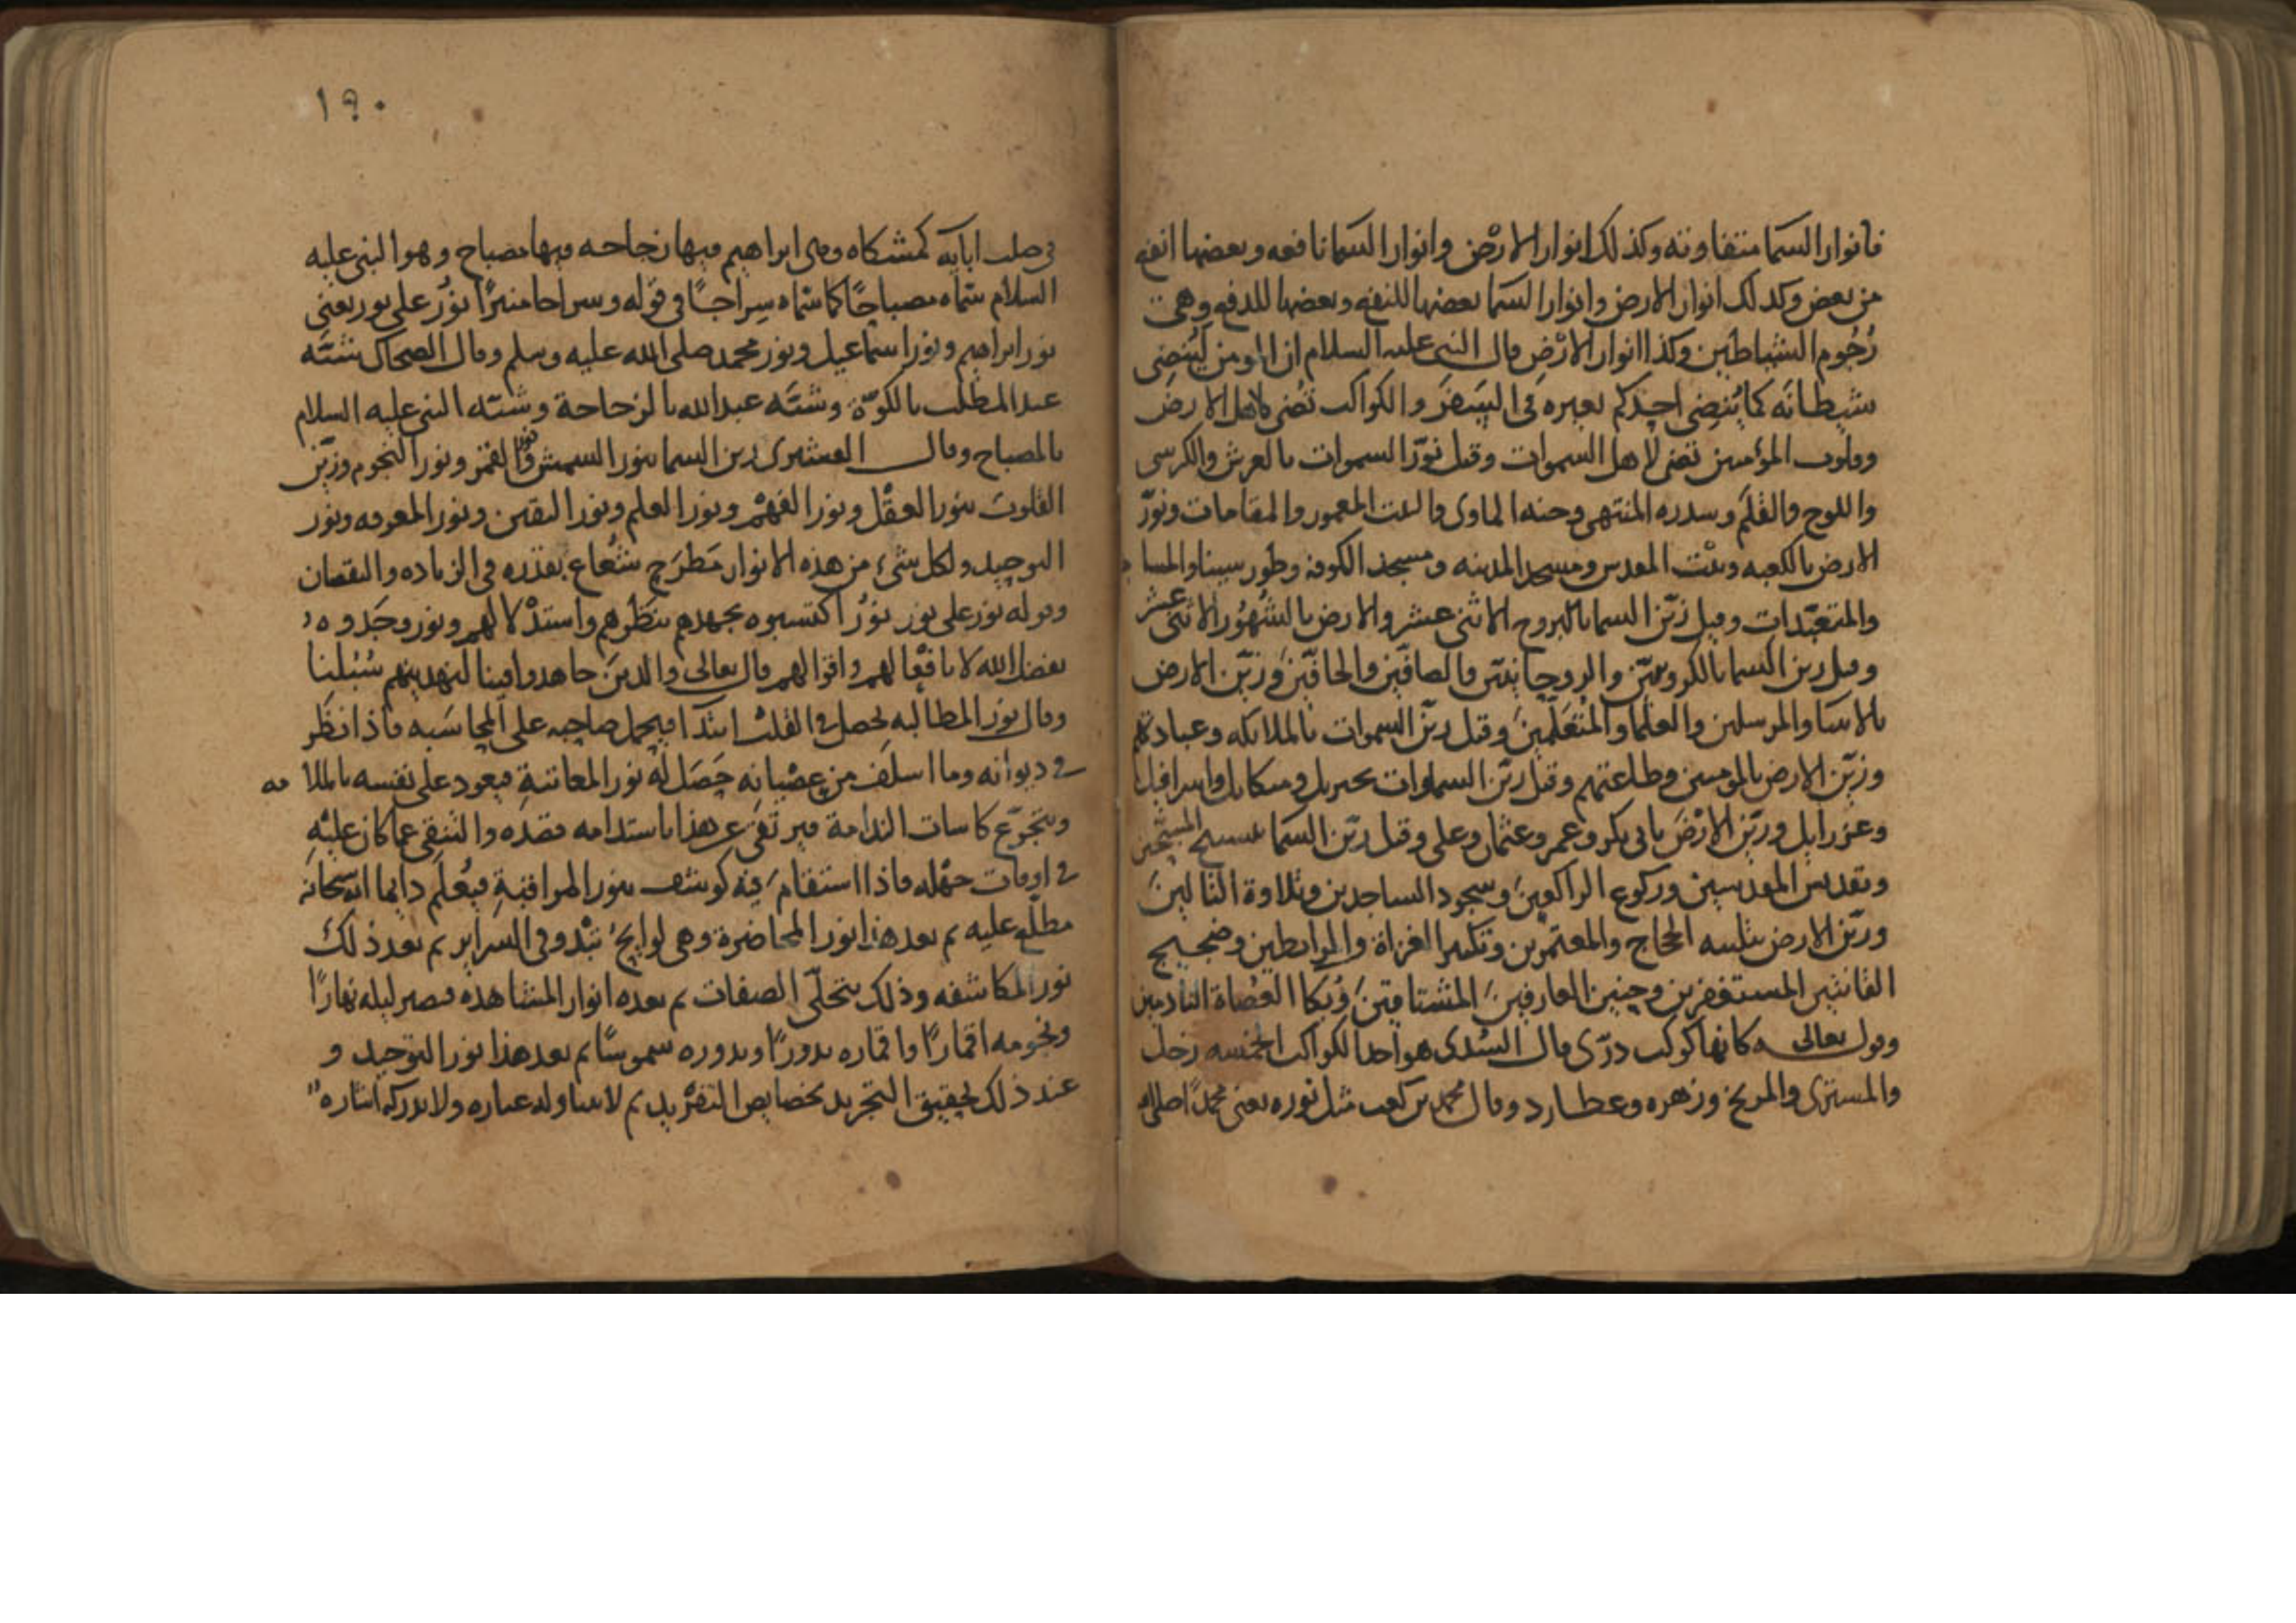 فانوار السما متفاوته وكذلك انوار الارض وانوار السما نافعه وبعضها انفع
من بعض وكذلك انوار الارض وانوار السما بعضها للنفع وبعضها للدفع وهي
رُجُوم الشياطين وكذا انوار الارْض قال النبي عليه السلام ان المومن ليُنضِي
شيطانَه كما يُنضِي احدكم بعيره في السَفَر والكواكب تُضي لاهل الارض
وقلوب المؤمنين تضي لاهل السموات وقيل نوّر السموات بالعرش والكرسي
واللوح والقلم وسدره المنتهى وجنه الماوى والبيت المعمور والمقامات ونوّر
الارض بالكعبه وبيْت المقدس ومسجد المدينه ومسجد الكوفه وطور سينا والمساجد
والمتعبّدات وقيل زيّن السما بالبروج الاثني عشر والارض بالشهُوْر الاثني عشر
وقيل زين السما بالكروبيّين والروحانيّين والصافّين والحافّين وزيّن الارض
بالانبيا والمرسلين والعلما والمُتعَلّمينَ وقيل زيّن السموات بالملائكه وعبادتهم
وزيّن الارض بالمومنين وطاعتهم وقيل زيّن السماوات بجبريل وميكايل واسرافيل
وعزرايل وزيّن الارْضَ بابي بكر وعمر وعثمان وعلي وقيل زيّن السما بتسبيح المسبّحين
وتقديس المقدسين وركوع الراكعِينَ وسجود الساجدين وتلاوة التالينَ
وزيّن الارض بتلبيه الحجاج والمعتمرين وتكبير الغزاة والمرابطين وضجيج
القانتين المستغفرين وحنين العارفينَ المشتاقينَ وبُكا العُصاة النادمين
وقول تعالى كانها كوكب درّي قال السُدي هو احدالكواكب الخمسه زحل
والمشتري والمريخ وزهره وعطارد وقال محمد بن كعب مثل نوره يعني محمدًا صلى الله
١٩٠
في صلب ابايه كمشكاه وهي ابراهيم فيها زجاجه فيها مصباح وهو النبي عليه
السلام سَمّاه مصباحًا كما سمّاه سِراجًا في قوله وسراجا منيرًا نورٌ على نور يعني
نور ابراهيم ونور اسماعيل ونور محمد صلى الله عليه وسلم وقال الضحاك شبّه
عبد المطلب بالكوّة وشبّه عبد الله بالزجاجة وشبّه النبي عليه السلام
بالمصباح وقال القشيري زين السما بنور الشمس ونور القمر ونور النجوم وزيّن
القلوبَ بنور العقْل ونور الفهْمِ ونور العلم ونور اليقين ونور المعرفه ونور
التوحيد ولكل شيء من هذه الانوار مَطرَح شعاع بقدره في الزياده والنقصان
وقوله نور على نور نورٌ اكتسبوه بجهدهم بنَظَرهم واستدْلالهم ونور وجَدوه
بفضل الله لا بافعالهم واقوالهم قال تعالى والذينَ جاهدوا فينا لنهدينهم سُبُلنا
وقال نور المطالبه يحصل في القلب ابتدا فيحمل صاحبه على المحاسَبه فاذا نظر
في ديوانه وما اسلف من عِصْيانه حَصَل له نور المعاتبةِ فيعود على نفسه بالملامه
ويتجرّع كاسات الندامة فيرتقي عن هذا باستدامه قصْدِه والتنقي عما كان عليْهِ
في اوقات جهْله فاذا استقام فيه كوشف بنور المراقبةِ فيُعلَم دايما انه سبحانه
مطلّع عليه ثم بعد هذا نور المحاضرة وهي لوايحُ تبْدو في السراير ثم بعد ذلك
نور المكاشفه وذلك بتجلّي الصفات ثم بعده انوار المشاهده فيصير ليله نهارًا
ونجومه اقمارًا واقماره بدورًا وبدوره شموسًا ثم بعد هذا نور التوحيد و
عند ذلك تحقيق التجريد بخصايص التفرْيد ثم لا يتناوله عباره ولا يدركه اشاره